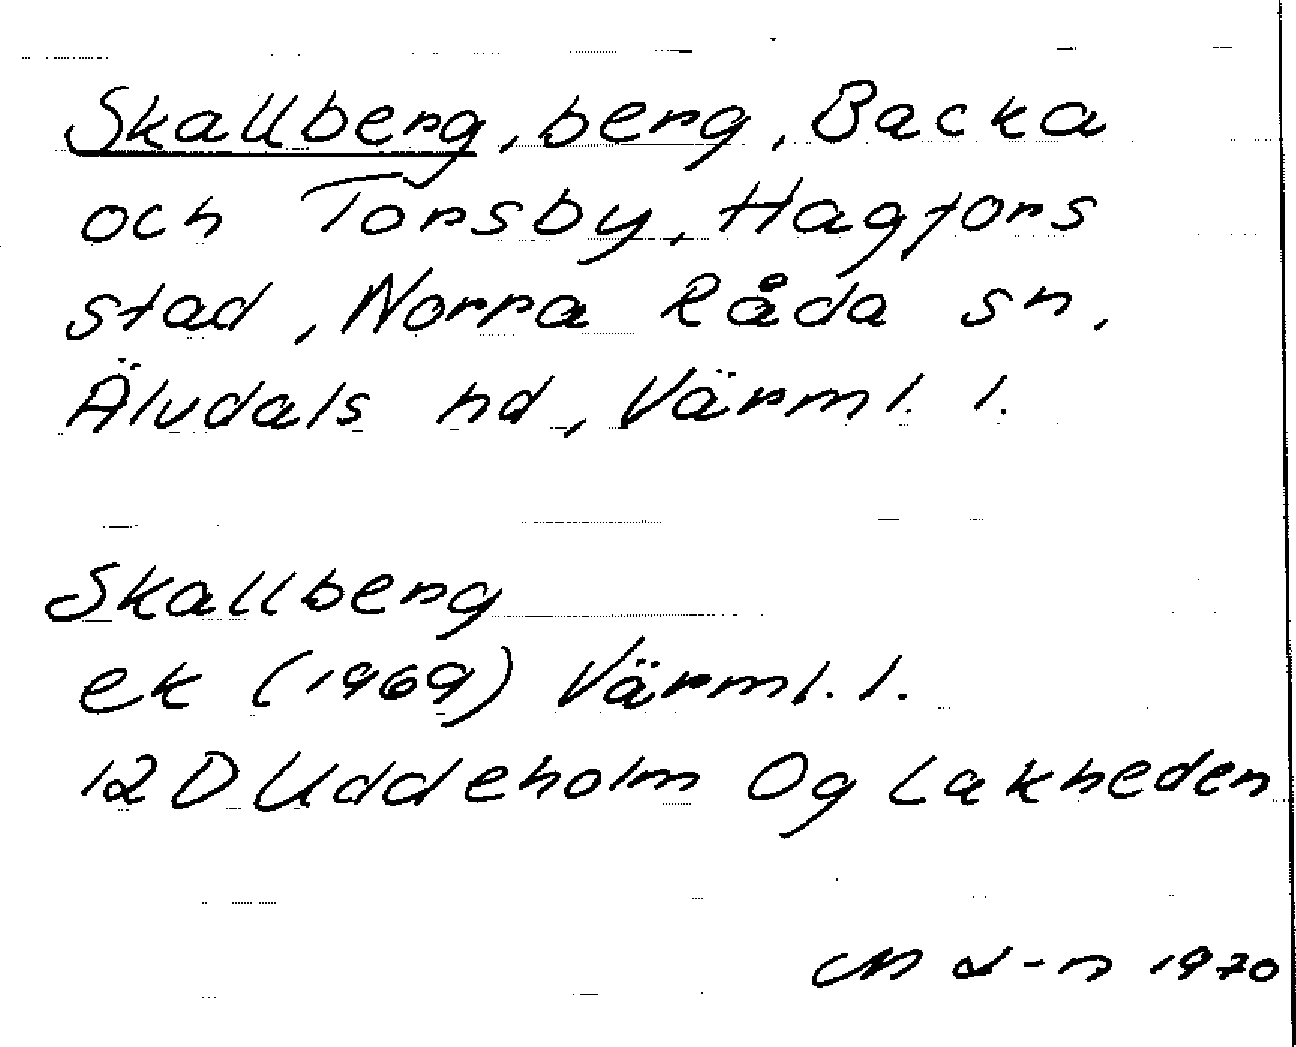 Skallberg, berg, Backa
och Torsby, Hagfors
stad, Norra Råda sn,
Älvdals hd, Värml. l.
Skallberg
ek (1969) Värml. l.
12 D Uddeholm 0g Lakheden
1970